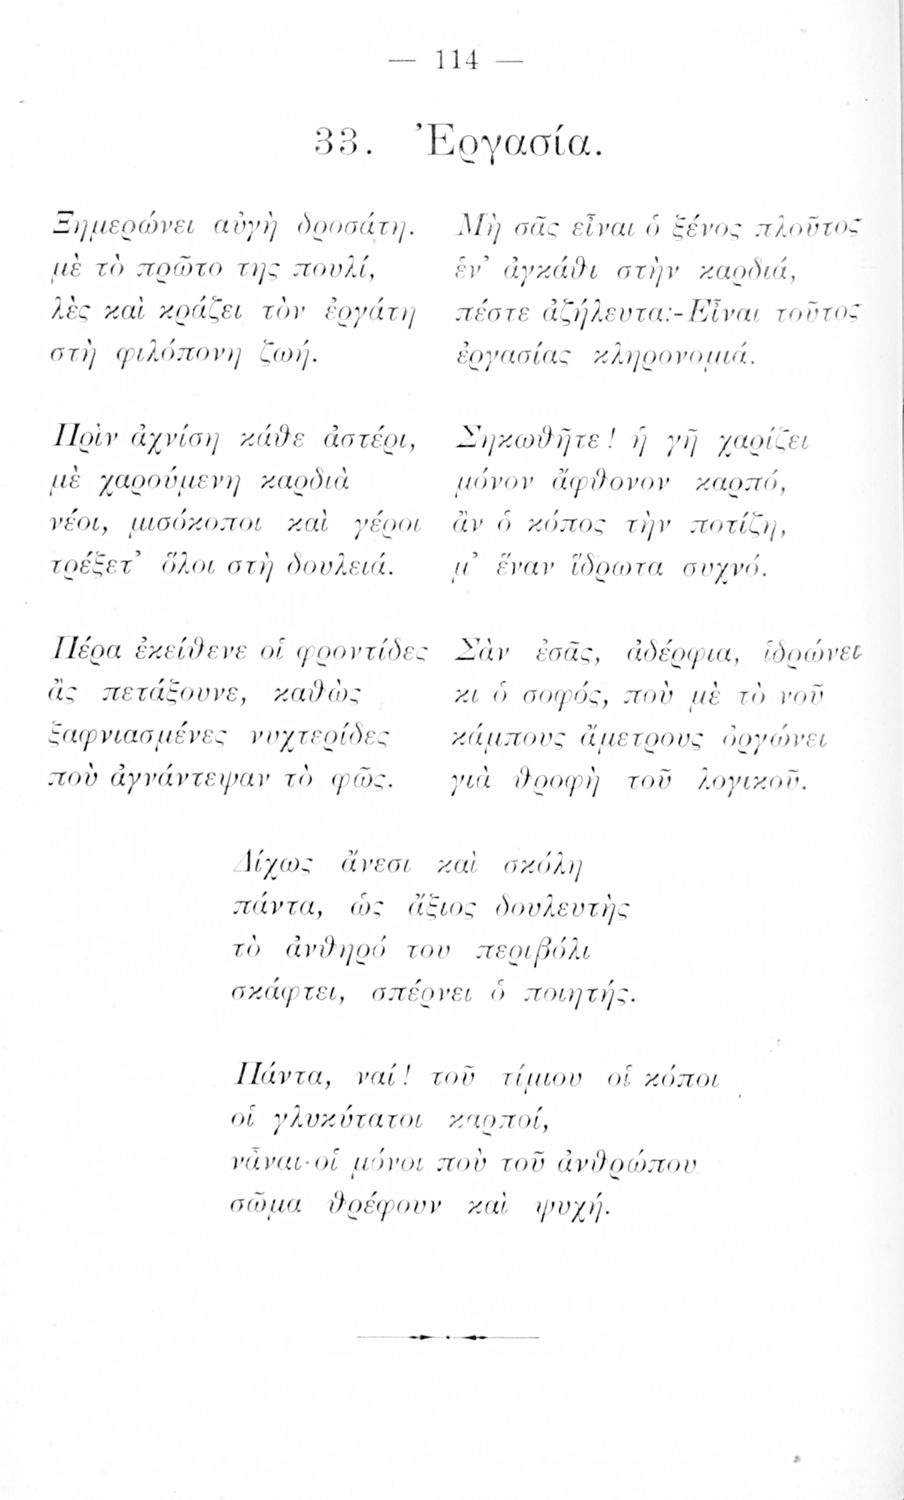 — 114 —
33. Ἐργασία.
Ξημερώνει αὐγὴ δροσάτη.
μὲ τὸ πρῶτο της πουλί,
λὲς καὶ κράζει τὸν ἐργάτη
στὴ φιλόπονη ζωή.
Πρὶν ἀχνίσῃ κάθε ἀστέρι,
μὲ χαρούμενη καρδιὰ
νέοι, μισόκοποι καὶ γέροι
τρέξετ’ ὅλοι στὴ δουλειά.
Πέρα ἐκείθενε οἱ φροντίδες
ἂς πετάξουνε, καθὼς
ξαφνιασμένες νυχτερίδες
ποὺ ἀγνάντεψαν τὸ φῶς.
Μὴ σᾶς εἶναι ὁ ξένος πλοῦτος
ἑν’ ἀγκάθι στὴν καρδιά,
πέστε ἀζήλευτα:-Εἶναι τοῦτος
ἐργασίας κληρονομιά.
Σηκωθῆτε! ἡ γῆ χαρίζει
μόνον ἄφθονον καρπό,
ἂν ὁ κόπος τὴν ποτίζῃ,
μ’ ἕναν ἵδρωτα συχνό.
Σὰν ἐσᾶς, ἀδέρφια, ἱδρώνει
κι ὁ σοφός, ποὺ μὲ τὸ νοῦ
κάμπους ἄμετρους ὀργώνει
γιὰ θροφὴ τοῦ λογικοῦ.
Δίχως ἄνεσι καὶ σκόλη
πάντα, ὡς ἄξιος δουλευτὴς
τὸ ἀνθηρό του περιβόλι
σκάφτει, σπέρνει ὁ ποιητής.
Πάντα, ναί! τοῦ τίμιου οἱ κόποι
οἱ γλυκύτατοι καρποί,
νἆναι οἱ μόνοι ποὺ τοῦ ἀνθρώπου
σῶμα θρέφουν καὶ ψυχή.